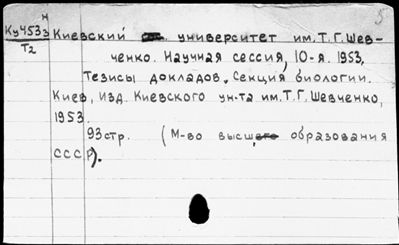 Ку453з н Киевский университет им. Т. Г. Шев-
Т2
ченко. Научная сессия, 10-я. 1953,
Тезисы докладов. Секция биологии.
Киев, Изд. Киевского ун-та им. Т. Г. Шевченко,
1953.
93 стр. (М-во высш. образования
СССР).